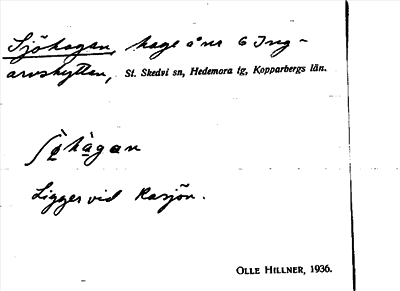 Sjöhagan, hage å nr 6 Ing-
arvshyttan, St. Skedvi sn, Hedemora tg, Kopparbergs län.
hàgan
Ligger vid Rasjön.
OLLE HILLNER, 1936.